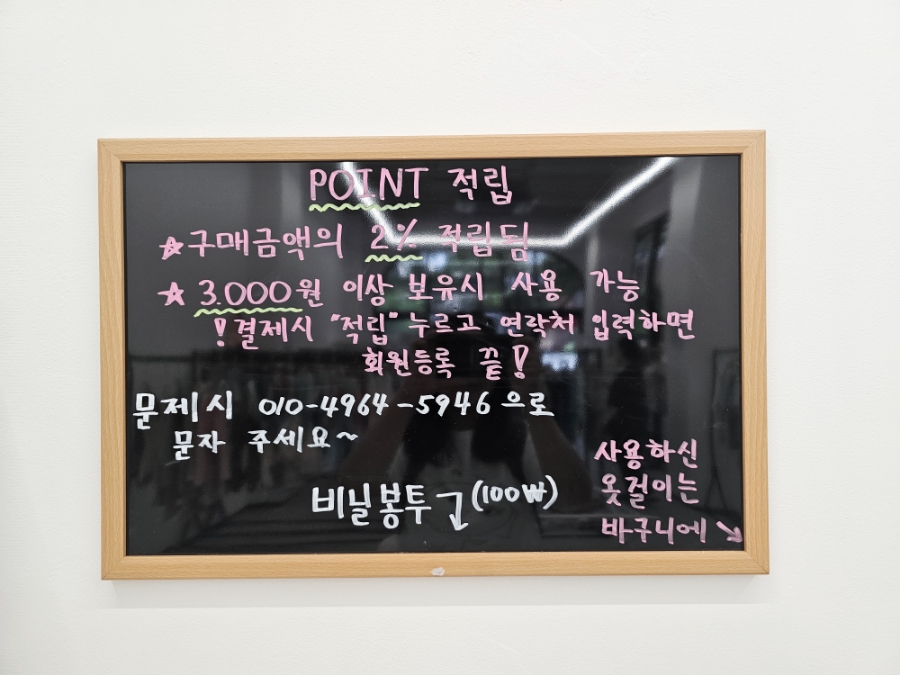 POINT 적립
☆구매금액의 2% 적립됨
☆ 3.000원 이상 보유시 사용 가능
!결제시 "적립" 누르고 연락처 입력하면
회원등록 끝!
문제시 010-4964-5946으로
문자 주세요~
비닐봉투 (100₩)
사용하신
옷걸이는
바구니에 ↘